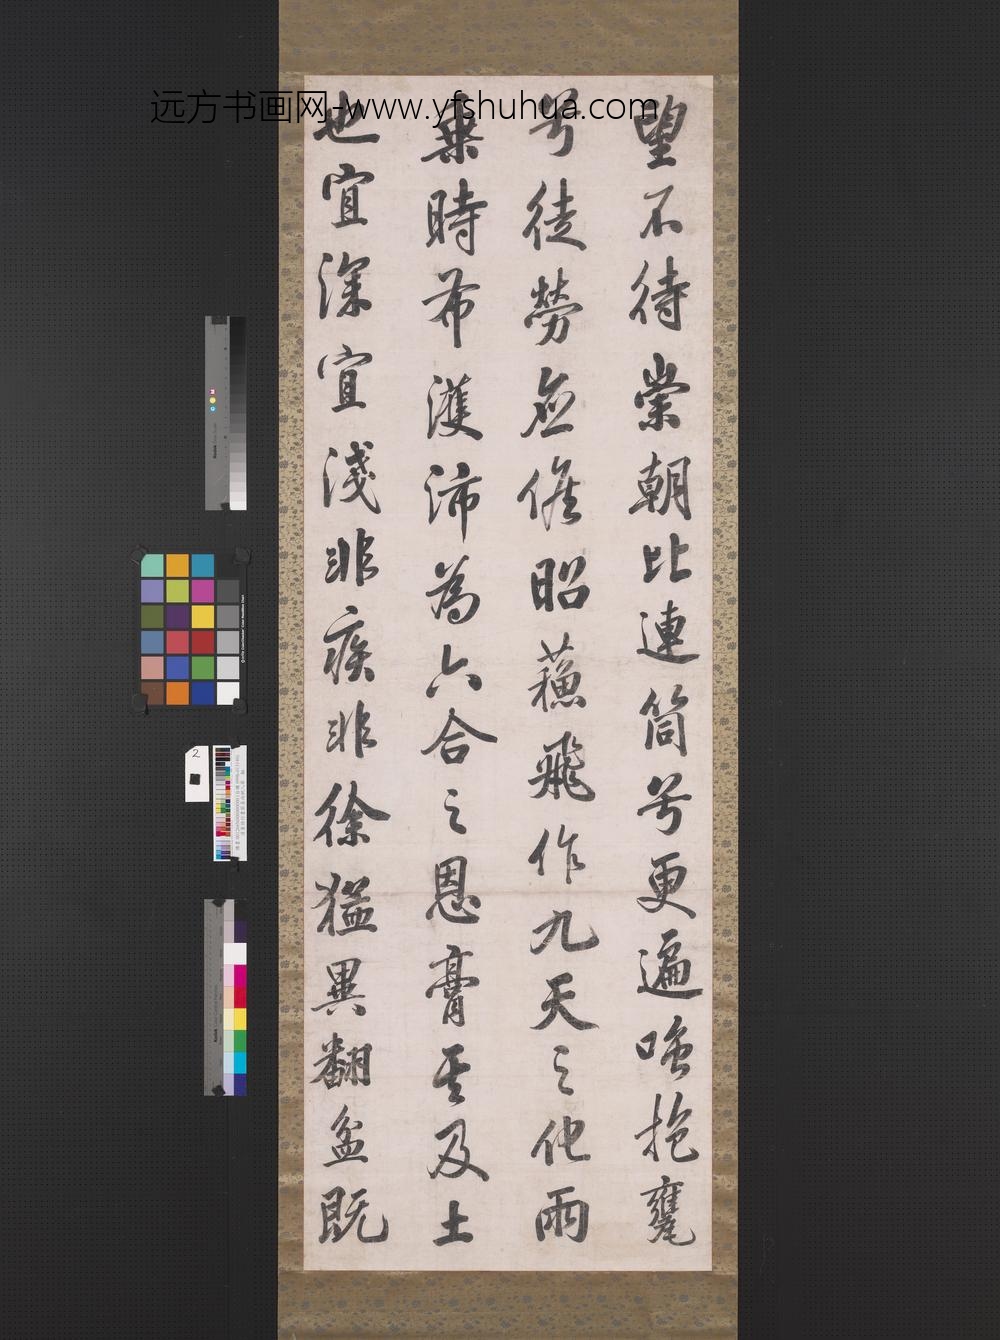 远方书画网-www.yfshuhua.com
望不待崇朝比連筒兮更遍嗤抱甕
兮徒勞應候昭蘇飛作九天之他雨
乘時布濩沛為六合之恩膏其及土
也宜深宜淺非疾非徐猛異翻盆既
2